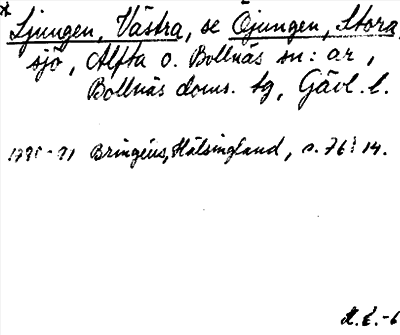 * Ljungen, Västra, se Öjungen, Stora
sjö, Alfta o. Bollnäs sn:ar,
Bollnäs doms. tg, Gävl. l.
1790-91 Bringéus, Hälsingland, s. 76: 14.